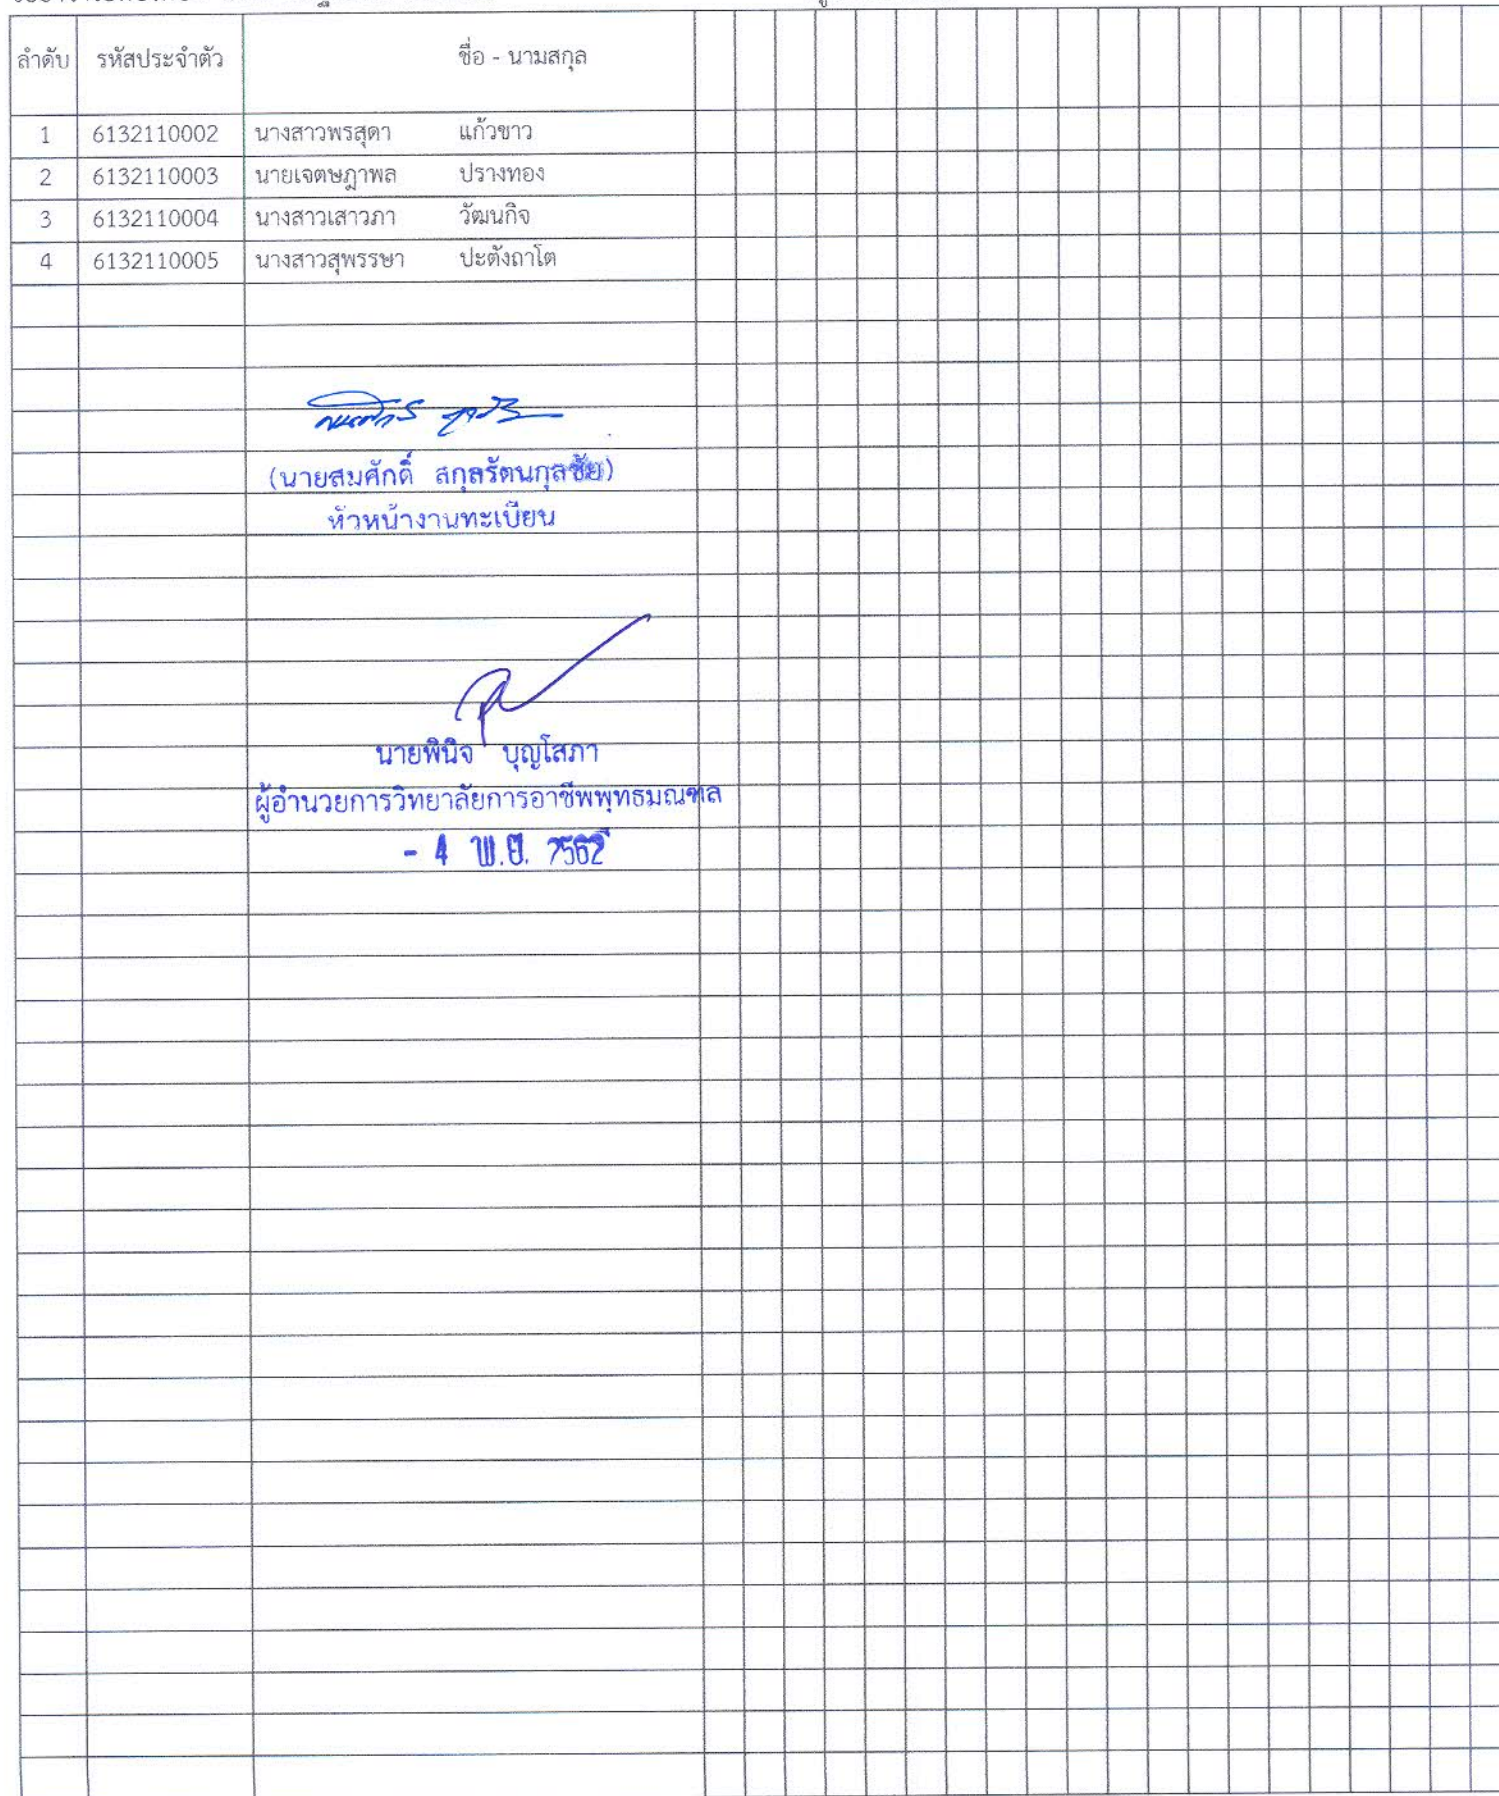 ลำดับ รหัสประจำตัว ชื่อ - นามสกุล
1 6132110002 นางสาวพรสุดา แก้วขาว
2 6132110003 นายเจตษฎาพล ปรางทอง
3 6132110004 นางสาวเสาวภา วัฒนกิจ
4 6132110005 นางสาวสุพรรษา ปะตังถาโต
(นายสมศักดิ์ สกุลรัตนกุลชัย)
หัวหน้างานทะเบียน
นายพินิจ บุญโสภา
ผู้อำนวยการวิทยาลัยการอาชีพพุทธมณฑล
- 4 พ.ย. 2562